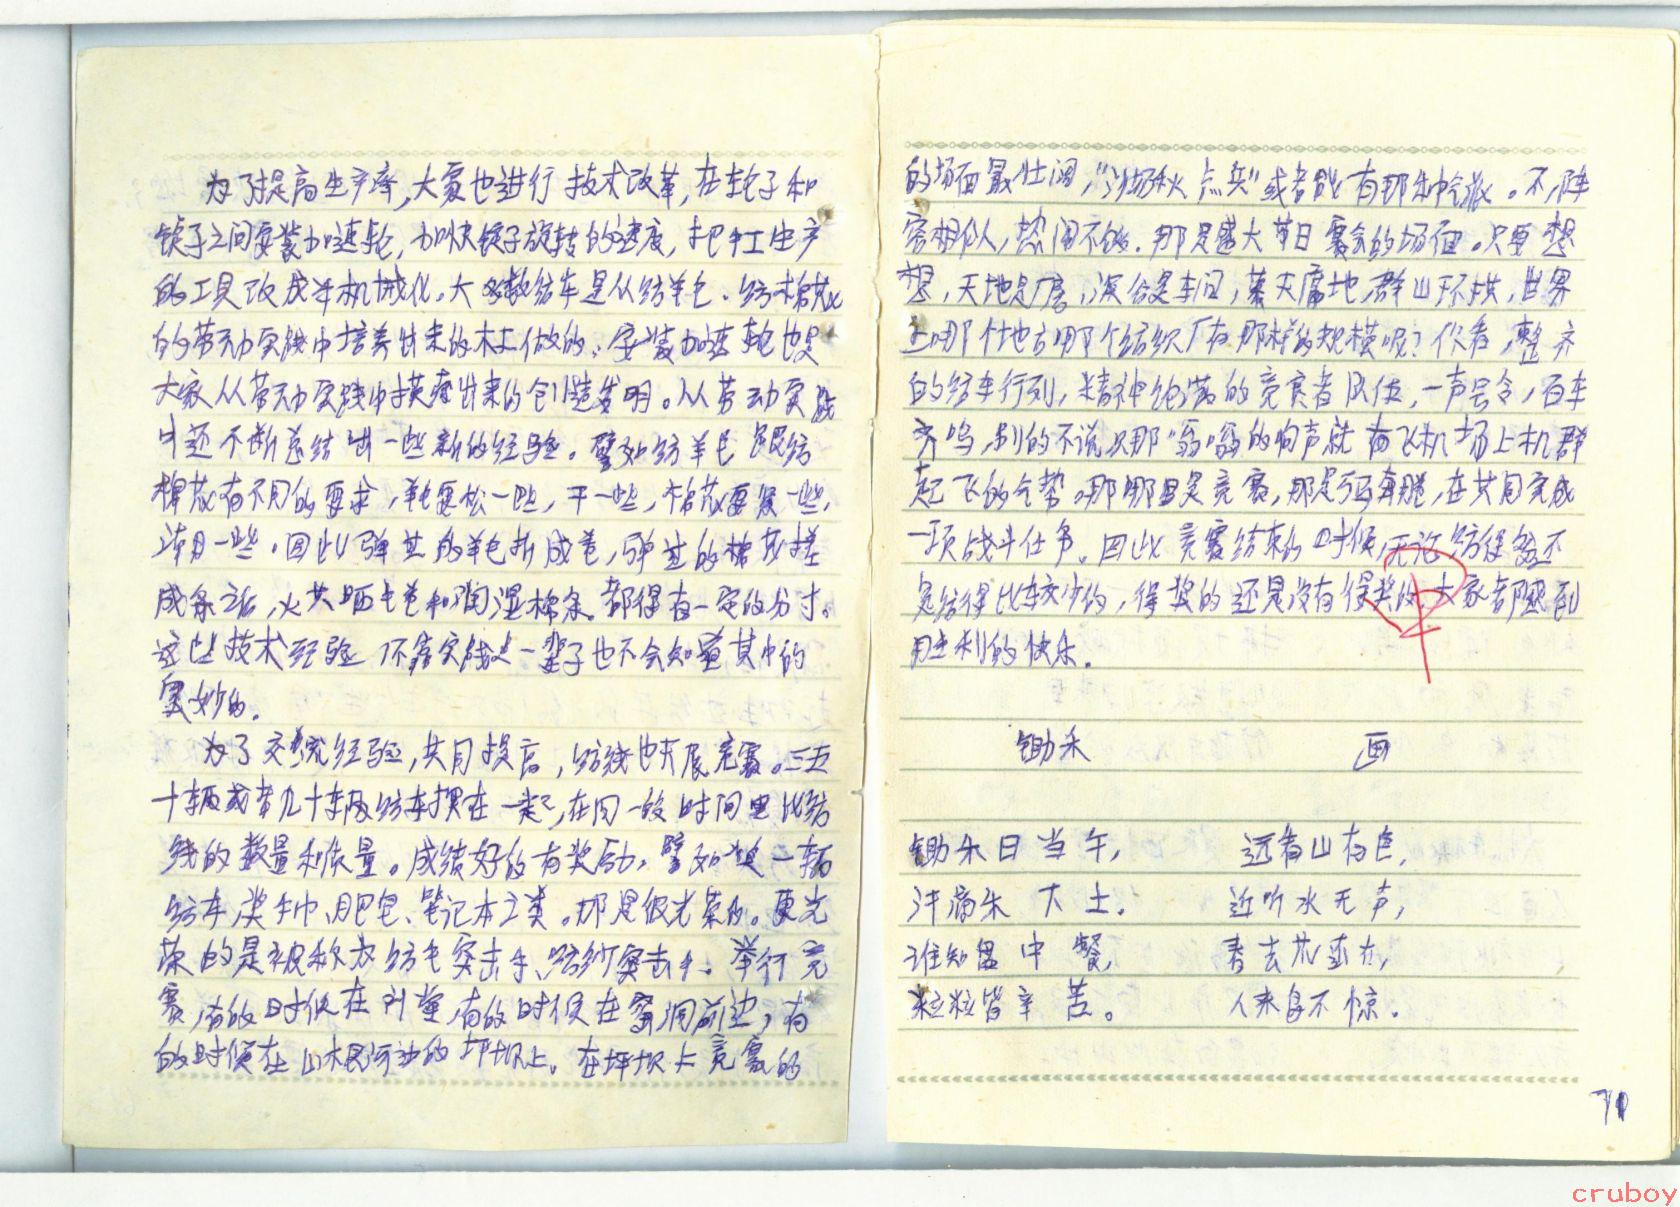 为了提高生产率，大家也进行技术改革，在轮子和
锭子之间安装加速轮，加快锭子旋转的速度，把手工生产
的工具改成半机械化。大多数纺车是从纺羊毛、纺棉花
的劳动实践中培养出来的木工做的；安装加速轮也是
大家从劳动实践中摸索出来的创造发明。从劳动实践
中还不断总结出一些新的经验。譬如纺羊毛跟纺
棉花有不同的要求，羊毛要松一些，干一些，棉花要紧一些，
潮一些。因此弹过的羊毛折成卷，弹过的棉花搓
成条之后，火烘晒毛卷和润湿棉条都得有一定的分寸。
这些技术经验不靠实践一辈子也不会知道其中的
奥妙的。
为了交流经验，共同提高，纺线也开展竞赛。三五
十辆或者几十辆纺车摆在一起，在同一段时间里比纺
线的数量和质量。成绩好的有奖励，譬如奖一辆
纺车，奖手巾、肥皂、笔记本之类。那是很光荣的。更光
荣的是被称为纺毛突击手、纺纱突击手。举行竞
赛，有的时候在礼堂，有的时候在窑洞前边，有
的时候在山根河边的坪坝上。在坪坝上竞赛的
的场面最壮阔，“沙场秋点兵”或者能有那种气派。不，阵
容相似，热闹不够。那是盛大节日赛会的场面。只要想
想，天地是厂房，深谷是车间，幕天席地，群山环拱，世界
上哪个地方哪个纺织厂有那样的规模呢？你看，整齐
的纺车行列，精神饱满的竞赛者队伍，一声号令，百车
齐鸣，别的不说只那“嗡嗡”的响声就有飞机场上机群
起飞的气势。那哪里是竞赛，那是万马奔腾，在共同完成
一项战斗任务。因此竞赛结束的时候，无论纺得多还
是纺得比较少的，得奖的还是没有得奖的，大家都感到
胜利的快乐。
锄禾 画
锄禾日当午， 远看山有色，
汗滴禾下土。 近听水无声，
谁知盘中餐， 春去花还在，
粒粒皆辛苦。 人来鸟不惊。
71
cruboy